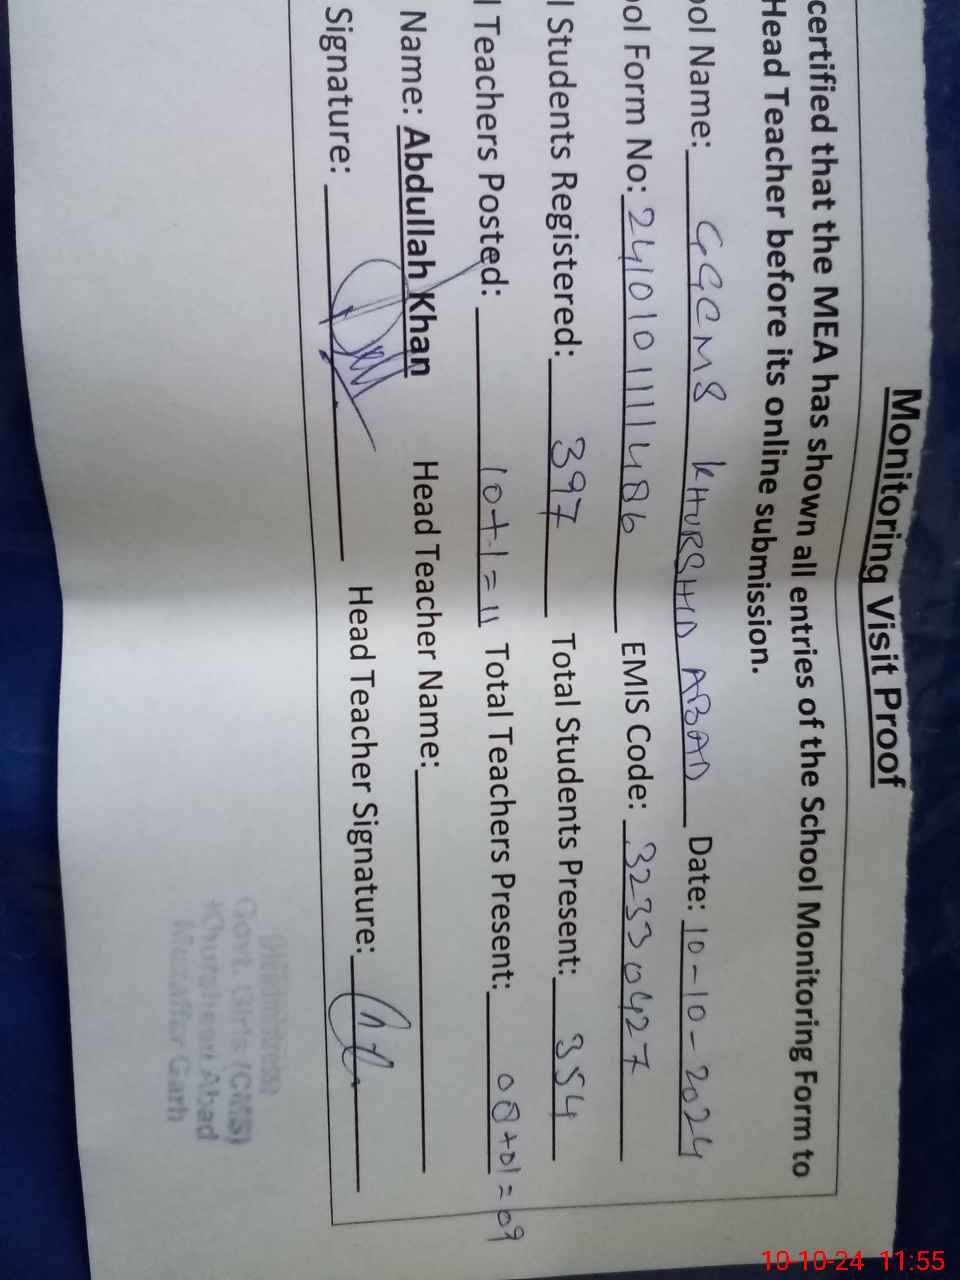 Monitoring Visit Proof
certified that the MEA has shown all entries of the School Monitoring Form to
Head Teacher before its online submission.
ol Name: GGCMS KHURSHID ABAD Date: 10-10-2024
ol Form No: 2410101111486 EMIS Code: 32330427
l Students Registered: 397 Total Students Present: 354
l Teachers Posted: 10+1=11 Total Teachers Present: 08+01=09
Name: Abdullah Khan Head Teacher Name:
Signature: Head Teacher Signature:
Govt. Girls (CMS)
Khursheed Abad
Muzaffar Garh
10-10-24 11:55